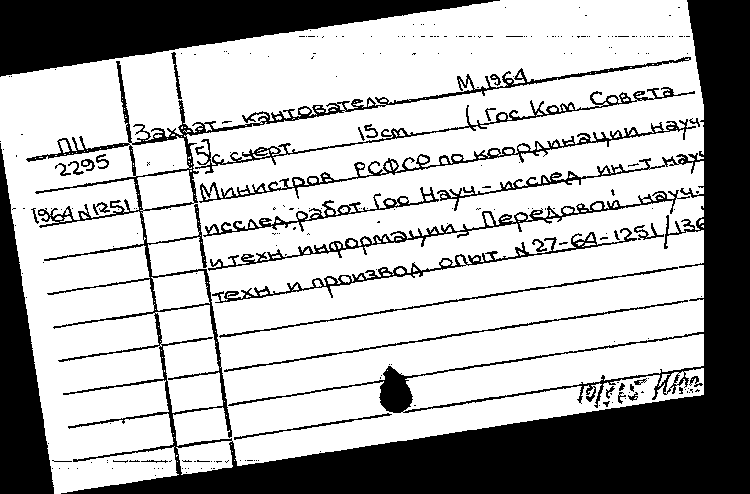 Захват-кантователь. М., 1964.
П11
2295
[5] с с черт. 15 см. (Гос. Ком. Совета
Министров РСФСР по координации науч.-
1964 N 1251
исслед. работ. Гос. Науч.-исслед. ин-т науч
и техн. информации). Передовой науч.-
техн. и производ. опыт. N 27-64-1251/136